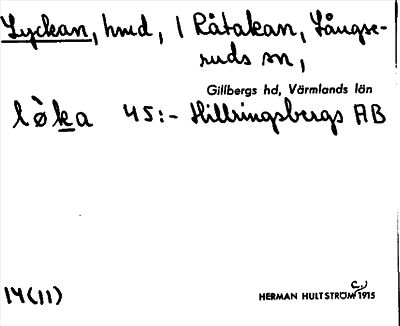 Lyckan, hmd, 1 Råtakan, Långse-
ruds sn,
Gillbergs hd, Värmlands län
lø̀ka 45:- Hillringsbergs AB
14(11)
HERMAN HULTSTRÖM 1915